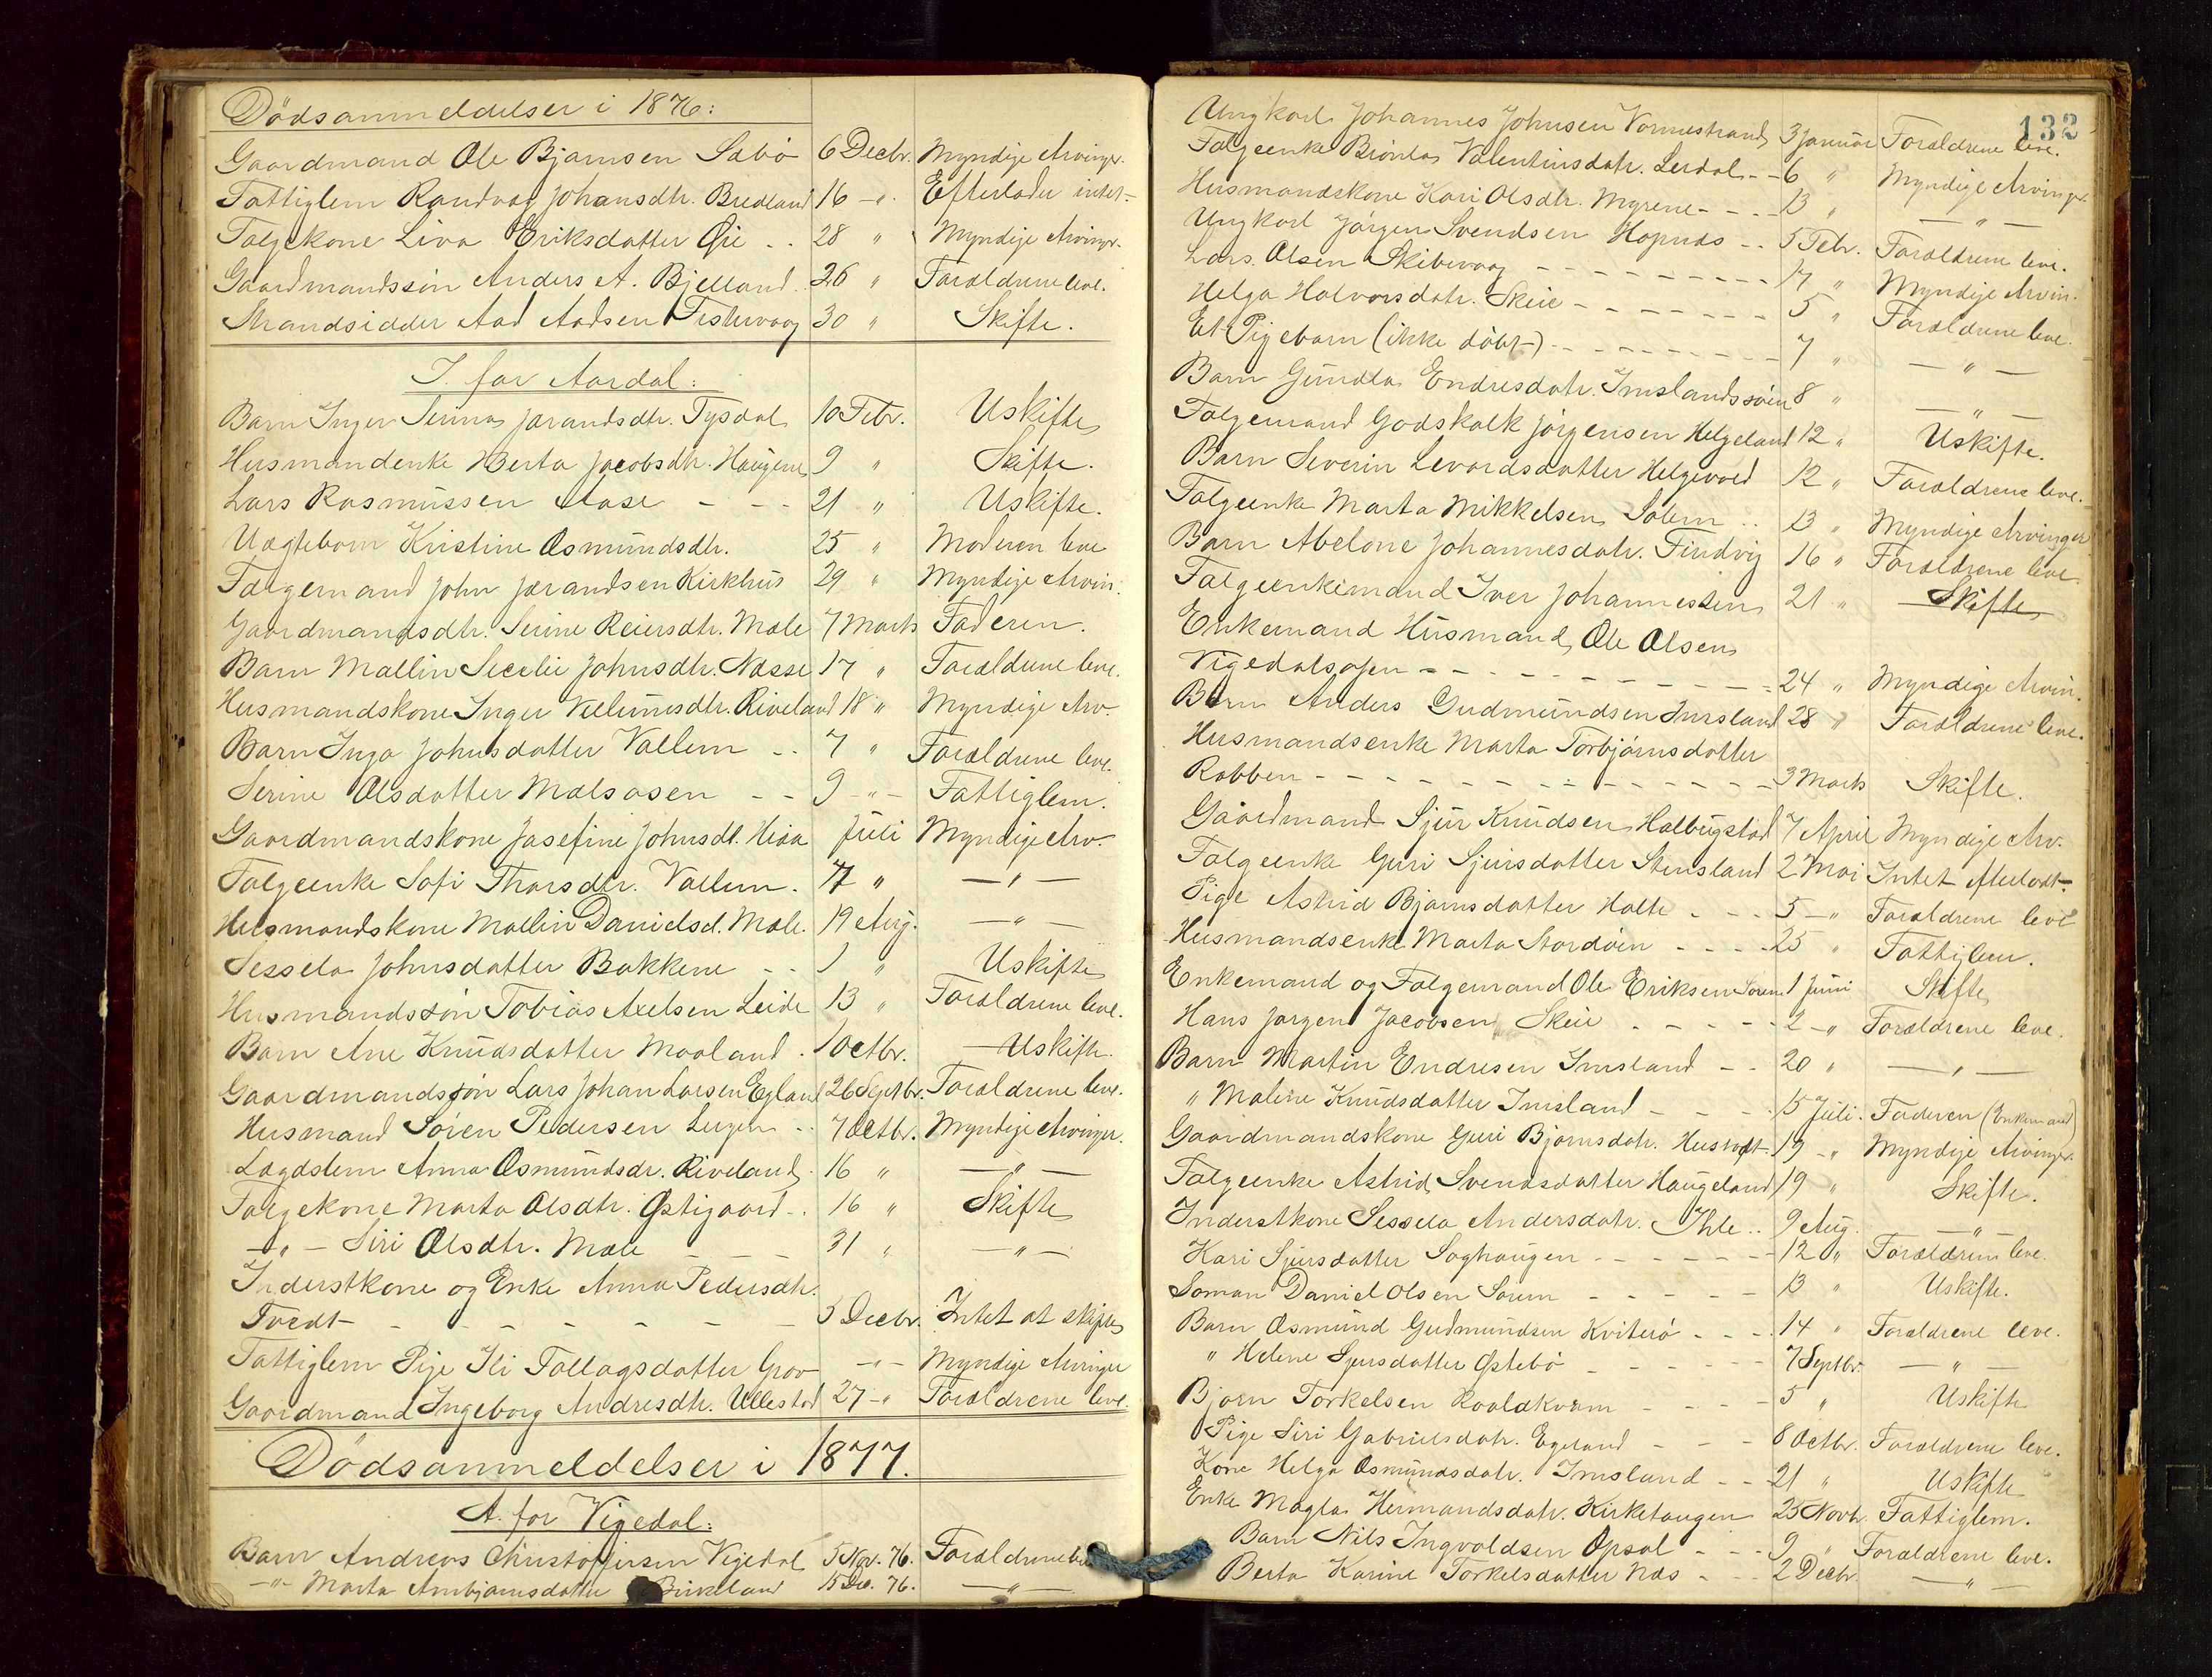 Dödsanmeldelser i 1876:
Gaardmand Ole Bjarnsen Sæbö 6 Decbr. Myndige Arvinger.
Fattiglem Randvag Johansdtr. Bredland 16 -"- Efterlader intet.-
Følgekone Liva Eriksdatter Øie .. 28 " Myndige Arvinger.
Gaardmandssön Anders A. Bjelland. 26 " Forældrene leve.
Strandsidder Aad Aadsen Fistervaag 30 " Skifte.
I. for Aardal:
Barn Inger Serina Jørandsdtr. Tysdal 10 Febr. Uskifte
Husmandenke Berta Jacobsdtr. Haugene 9 " Skifte.
Lars Rasmussen Aase - - - 21 " Uskifte.
Uægtebarn Kristine Osmundsdtr. 25 " Moderen leve
Følgemand John Jørandsen Kirkhus 29 " Myndige Arvin.
Gaardmandsdtr. Serine Reiersdtr. Mæle 7 Marts Faderen.
Barn Mallin Secelie Johnsdtr. Næsse 17 " Forældrene leve.
Husmandskone Inger Vellumsdtr. Riveland 18 " Myndige Arv.
Barn Inga Johnsdatter Vallem .. 7 " Forældrene leve.
Serine Olsdatter Mælsosen - - 9 -"- Fattiglem.
Gaardmandskone Josefine Johnsdt. Hiaa Juli Myndige Arv.
Følgeenke Sofi Thorsdtr. Vallem. 7 " -"-
Husmandskone Mallin Danielsd. Mæle. 19 Aug. -"-
Sessela Johnsdatter Bakkene - - 1 " Uskifte
Husmandssön Tobias Axelsen Leide 13 " Forældrene leve.
Barn Ane Knudsdatter Moaland . 1 Octbr. Uskifte.
Gaardmandssön Lars Johan Larsen Egland 26 Septbr. Forældrene leve.
Husmand Sören Pedersen .. 7 Octbr. Myndige Arvinger.
Lægdslem Anna Osmundsdr. Riveland. 16 " -"-
Følgekone Marta Olsdtr. Østigaard.. 16 " Skifte
-"- Siri Olsdtr. Mæle - - - 31 " -"-
Inderstkone og Enke Anna Pedersdtr.
Tvedt - - - - - - 5 Decbr. Intet at skifte
Fattiglem Pige Ili Tollagsdatter Grov -"- Myndige Arvinger
Gaardmand Ingeborg Andresdtr. Ullestad 27 -" Forældrene leve.
Dödsanmeldelser i 1877.
A. for Vigedal:
Barn Andreas Christoffersen Vigedal 5 Nov. 76. Forældrene
-"- Marta Arnbjørnsdatter Birkeland 15 Dec. 76. -"-
132
Ungkarl Johannes Johnsen Vormestrand 3 Januar Forældrene leve.
Følgeenke Brönla Valentinsdatr. Lerdal - - 6 " Myndige Arvinger.
Husmandskone Kari Olsdtr. Myrene - - - 13 " -"-
Ungkarl Jörgen Svendsen Hapnæs .. 5 Febr. Forældrene leve.
Lars Olsen Skibevaag - - - - - - - 17 " Myndige Arvin.
Helga Halvorsdatr. Skeie - - - - - - 5 " Forældrene leve.
Et Pigebarn (ikke döbt-) - - - - - - 7 " -"-
Barn Gunela Endresdatr. Imslandssöin 8 " -"-
Følgemand Godskalk Jörgensen Helgeland 12 " Uskifte.
Barn Severin Levardsdatter Helgevold 12 " Forældrene leve.
Følgeenke Marta Mikkelsen Solem .. 13 " Myndige Arvinger
Barn Abelone Johannesdatr. Findvig 16 " Forældrene leve.
Følgeenkemand Iver Johannessen 21 " Skifte
Enkemand Husmand Ole Olsen
Vigedalsosen - - - - - - - - 24 " Myndige Arvin.
Barn Anders Gudmundsen Imsland 28 " Forældrene leve.
Husmandsenke Marta Torbjörnsdatter
Robben - - - - - - - - - - 3 Marts Skifte.
Gaardmand Sjur Knudsen Halbugstad 7 April Myndige Arv.
Følgeenke Guri Sjursdatter Stensland 2 Mai Intet efterladt.
Pige Astrid Bjørnsdatter Holte - - - 5 -" Forældrene leve
Husmandsenke Marta Stordöen - - - - 25 " Fattiglem.
Enkemand og Følgemand Ole Eriksen Sørem 1 Juni Skifte
Hans Jørgen Jacobsen Skeie - - - - - 2 -" Forældrene leve.
Barn Martin Endresen Imsland - - 20 " -"-
" Maline Knudsdatter Imsland - - - . 15 Juli. Faderen (Enkemand)
Gaardmandskone Guri Bjørnsdatr. Hustoft 19 -" Myndige Arvinger.
Følgeenke Astrid Svendsdatter Haugeland 19 " Skifte.
Inderstkone Sessela Andersdatr. Ihle .. 9 Aug. -"-
Kari Sjursdatter Soghaugen - - - - - 12 " Forældrene leve.
Sömand Daniel Olsen Sørem - - - - - 13 " Uskifte.
Barn Osmund Gudmundsen Kviterö - - - 14 " Forældrene leve.
" Helene Sjursdatter Østebö - - - - - 7 Septbr. -"-
Bjørn Torkelsen Roaldkvam - - - - 5 " Uskifte
Pige Siri Gabrielsdatr. Egeland - - - 8 Octbr. Forældrene leve.
Kone Helga Osmundsdatr. Imsland - - 21 " Uskifte
Enke Magla Hermandsdatr. Kirketangen 25 Novbr. Fattiglem.
Barn Nils Ingvaldsen Opsal - - - 9 " Forældrene leve.
Berta Karine Torkelsdatter Næs - - - 2 Decbr. -"-